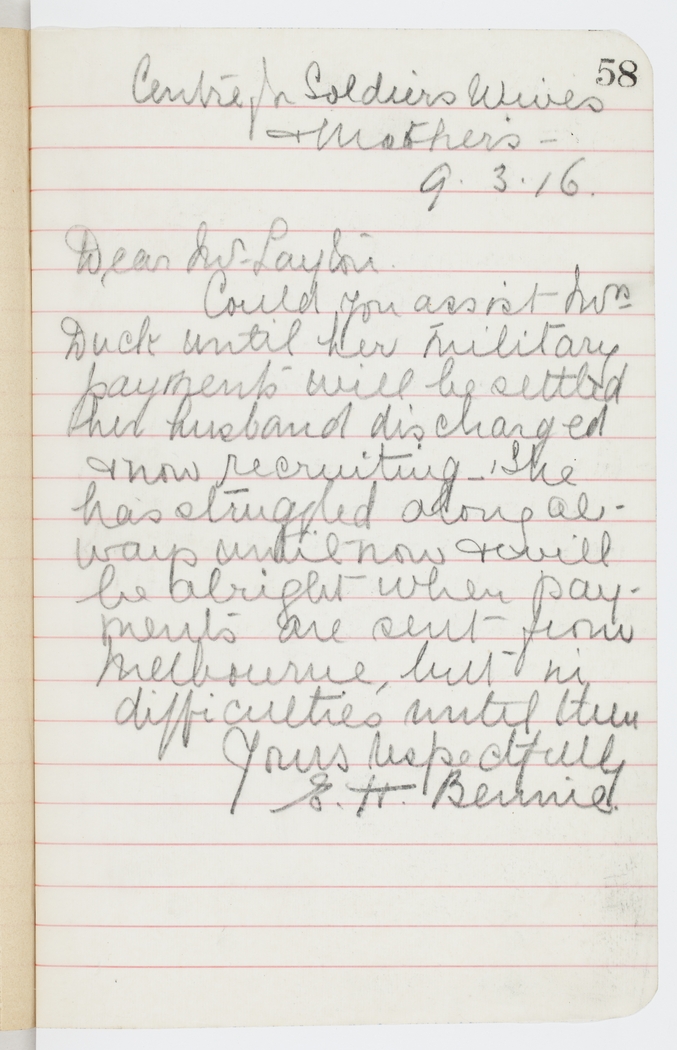 58
Centre for Soldiers Wives
& Mothers -
9. 3. 16.
Dear Mr Layton.
Could you assist Mrs
Duck until her military
payments will be settled
her husband discharged
& now recruiting - She
has struggled along al-
ways until now & will
be alright when pay-
ments are sent from
Melbourne, but in
difficulties until then
Yours respectfully
E. H. Bennie.